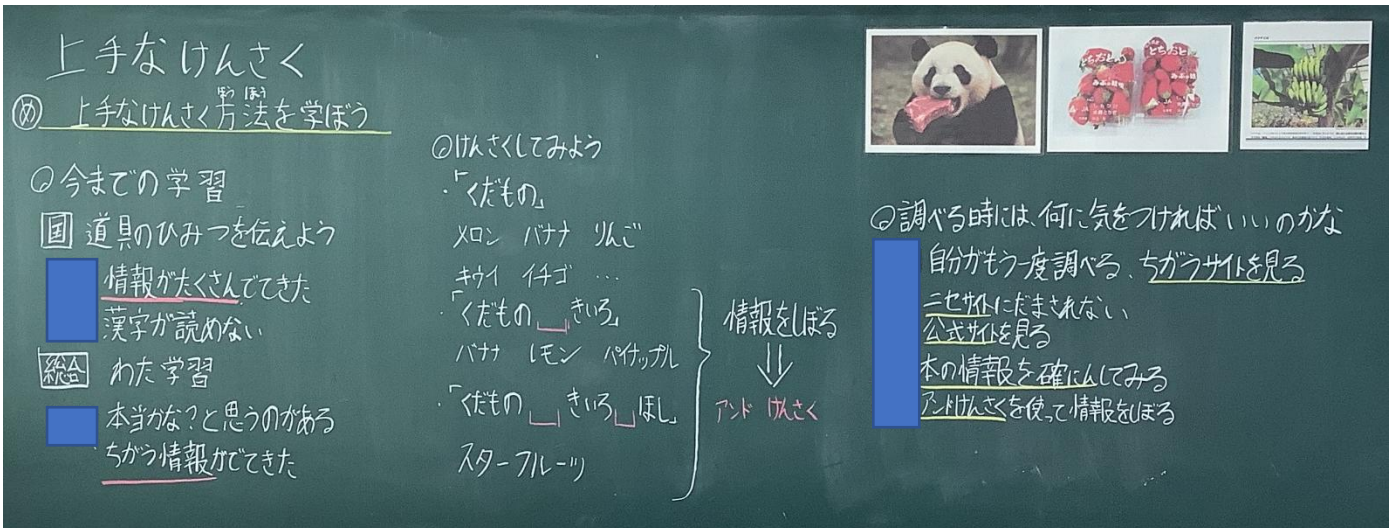 上手なけんさく
ほう ほう
め 上手なけんさく方法を学ぼう
今までの学習
国 道具のひみつを伝えよう
情報がたくさんでてきた
漢字が読めない
総合 わた学習
本当かな?と思うのがある
ちがう情報がでてきた
けんさくしてみよう
・「くだもの」
メロン バナナ りんご
キウイ イチゴ …
・「くだもの きいろ」
バナナ レモン パイナップル
・「くだもの きいろ ほし」
スターフルーツ
情報をしぼる
アンド けんさく
とちおとめ
調べる時には、何に気をつければいいのかな
自分がもう一度調べる、ちがうサイトを見る
ニセサイトにだまされない
公式サイトを見る
本の情報を確にんしてみる
アンドけんさくを使って情報をしぼる